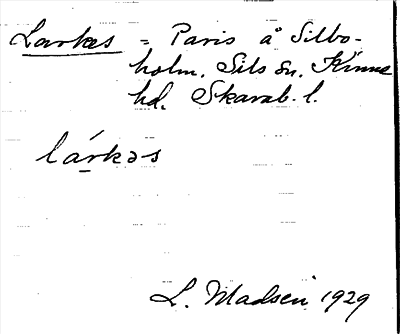 Larkas = Paris å Silbo-
holm, Sils sn, Kinne
hd, Skarab. l.
lárkəs
L. Madsén 1929